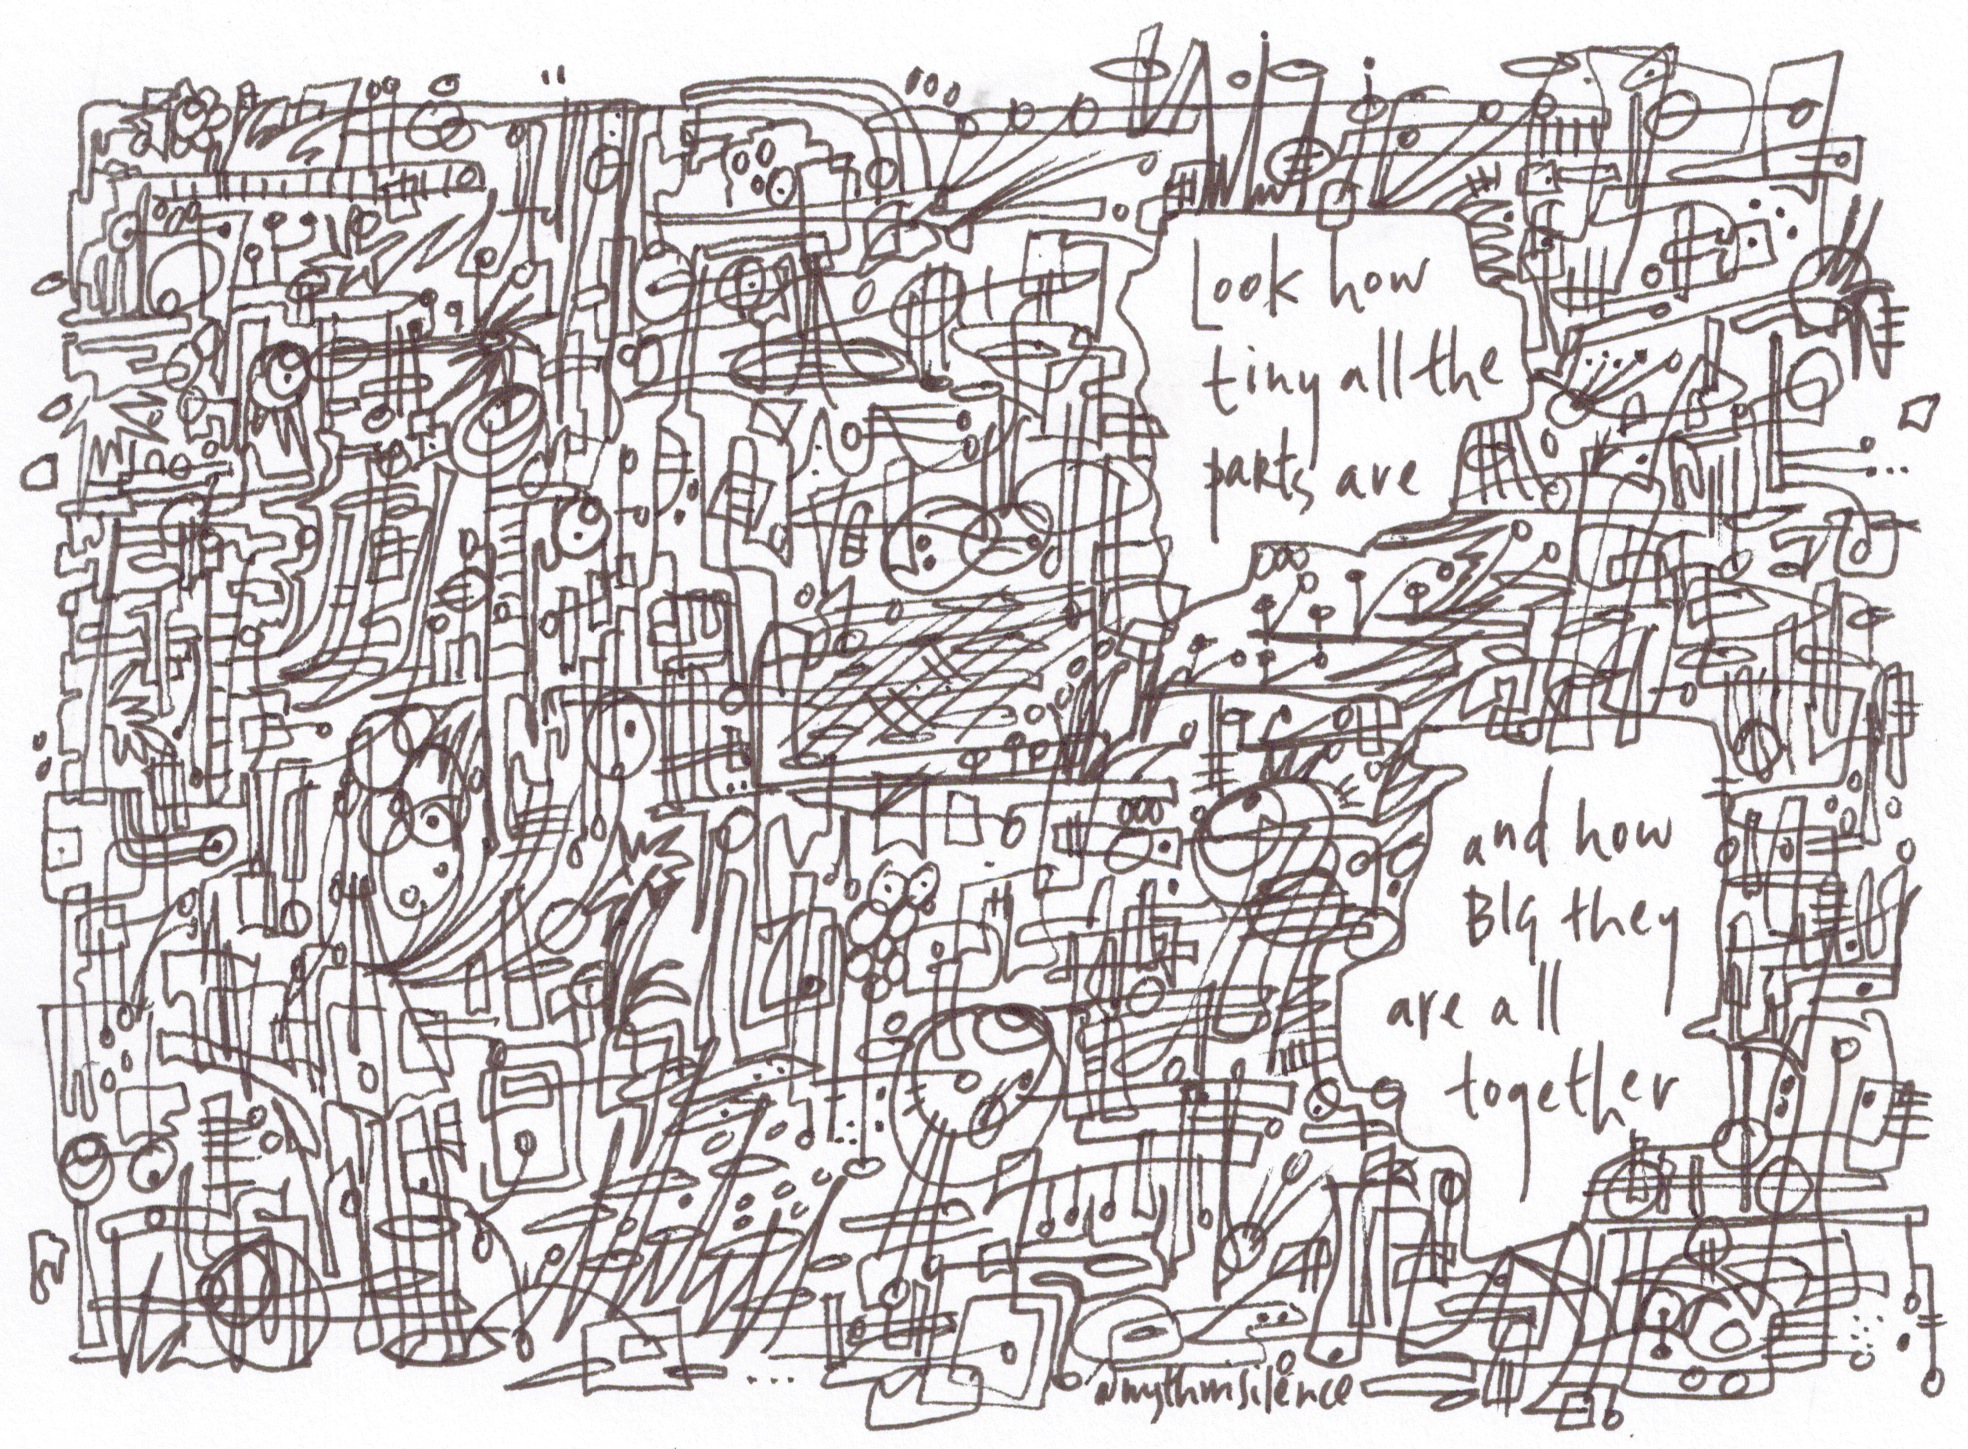 Look how
tiny all the
parts are
and how
BIG they
are all
together
@mythinsilence